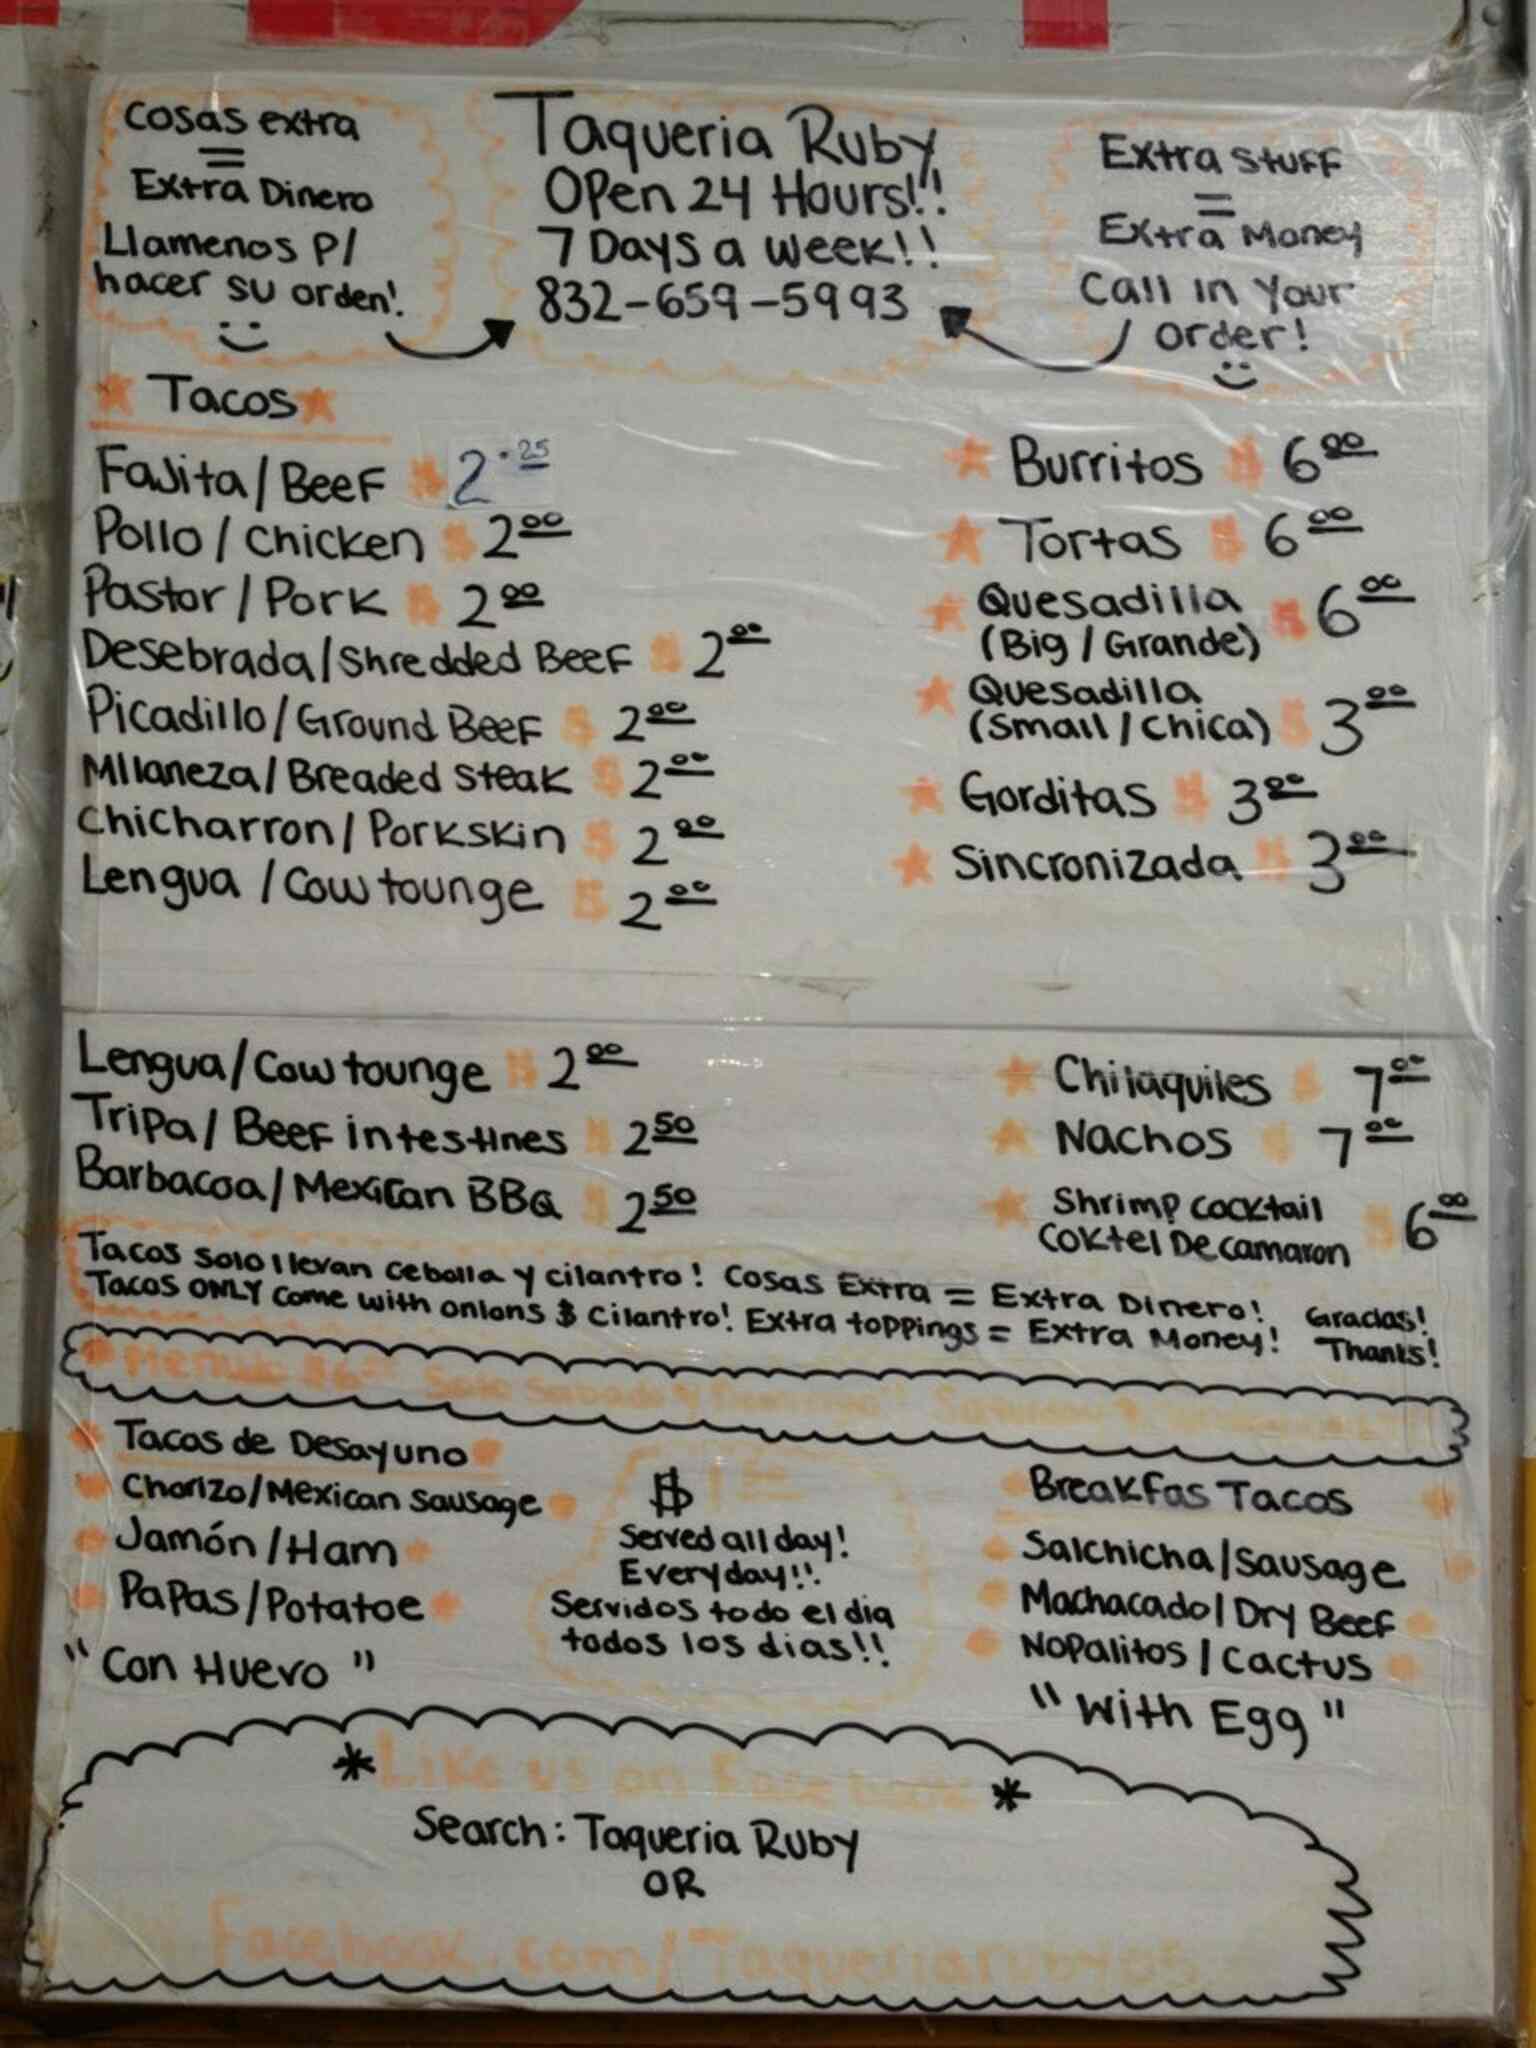 Cosas extra
=
Extra Dinero
Llamenos P/
hacer su orden!
Taqueria Ruby
Open 24 Hours!!
7 Days a week!!
832-659-5993
Extra Stuff
=
Extra Money
Call in Your
order!
Tacos
Fajita/Beef $ 2.25
Pollo/Chicken $ 2 00
Pastor/Pork $ 2 00
Desebrada/Shredded Beef $ 2 00
Picadillo/Ground Beef $ 2 00
Milaneza/Breaded steak $ 2 00
Chicharron/Porkskin $ 2 00
Lengua/Cow tounge $ 2 00
Burritos $ 6 00
Tortas $ 6 00
Quesadilla $ 6 00
(Big/Grande)
Quesadilla
(Small/Chica) $ 3 00
Gorditas $ 3 00
Sincronizada $ 3 00
Lengua/Cow tounge $ 2 00
Tripa/Beef intestines $ 2 50
Barbacoa/Mexican BBQ $ 2 50
Chilaquiles $ 7 00
Nachos $ 7 00
Shrimp cocktail $ 6 00
Coktel De camaron
Tacos solo llevan cebolla y cilantro! Cosas Extra = Extra Dinero! Gracias!
Tacos ONLY come with onions $ cilantro! Extra toppings = Extra Money! Thanks!
Menudo $6 00 Solo Sabado y Domingo!! Saturday &
Tacos de Desayuno
Chorizo/Mexican sausage
Jamón/Ham
Papas/Potatoe
"Con Huevo"
$ 1
Served all day!
Everyday!!
Servidos todo el dia
todos los dias!!
Breakfas Tacos
Salchicha/Sausage
Machacado/Dry Beef
Nopalitos/Cactus
"With Egg"
*Like us on Facebook*
Search: Taqueria Ruby
OR
Facebook.com/Taqueriaruby05